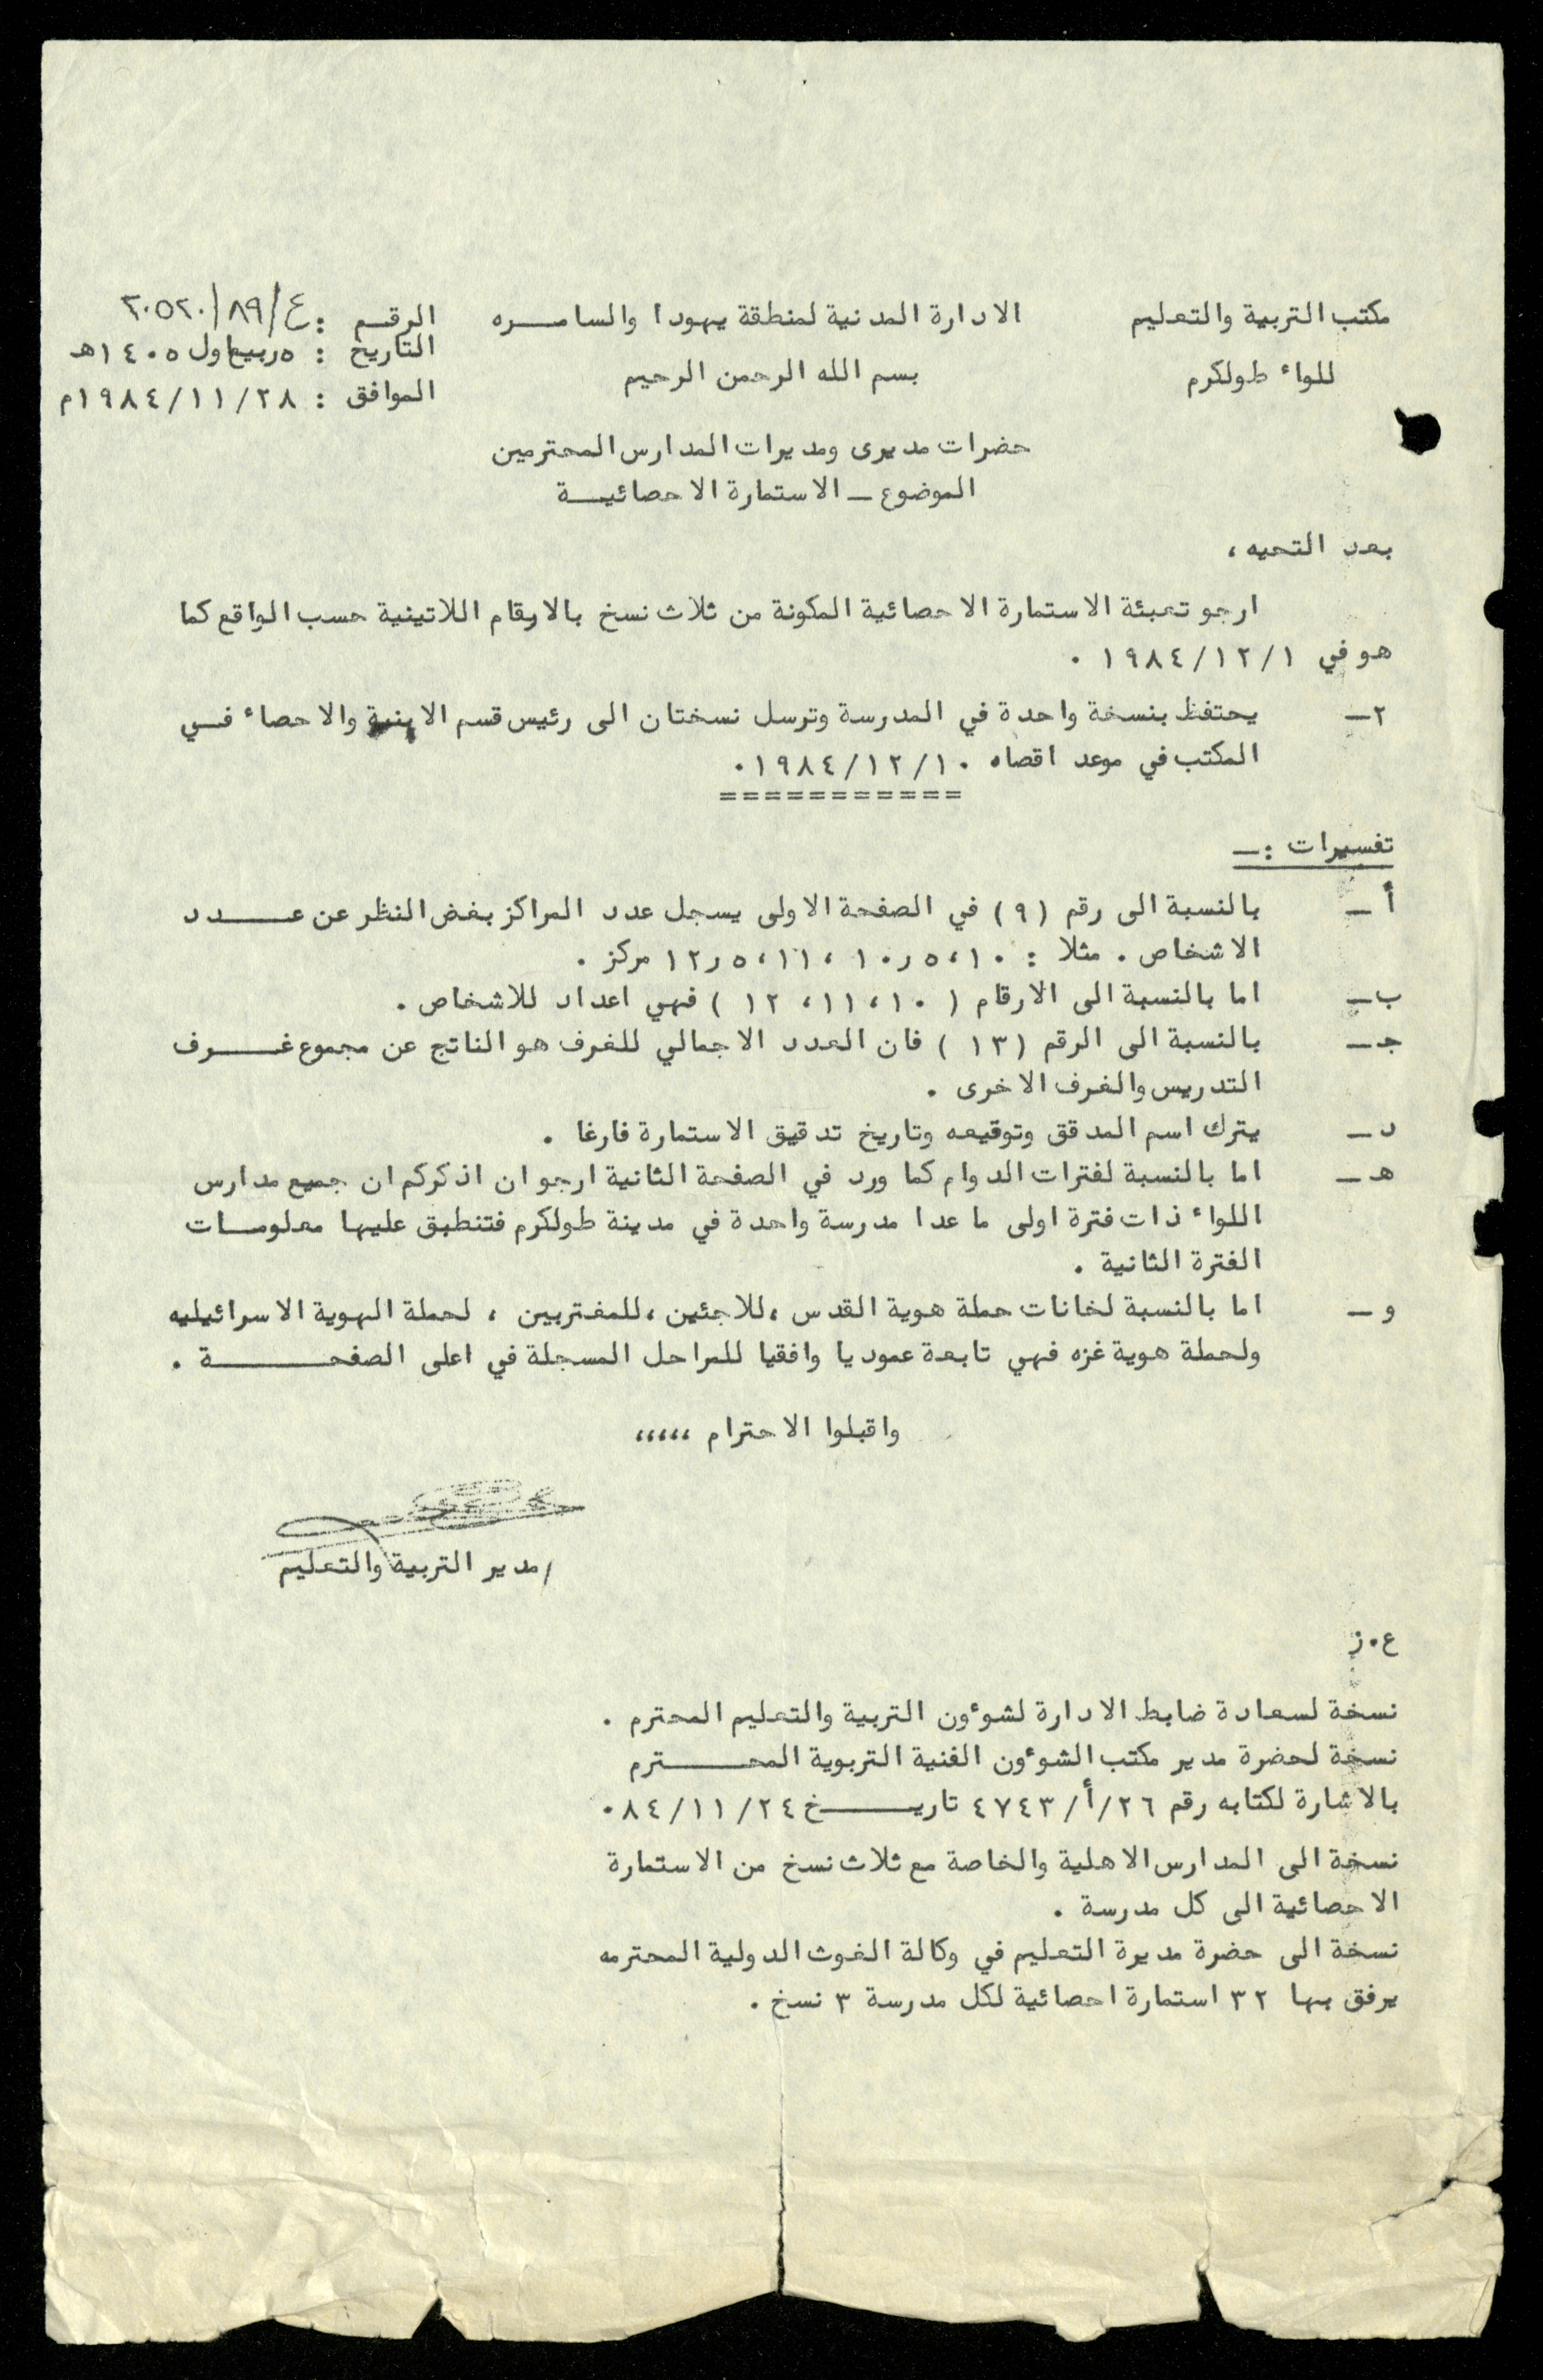 مكتب التربية والتعليم
للواء طولكرم
الادارة المدنية لمنطقة يهودا والسامـــره
بسم الله الرحمن الرحيم
الرقـم : ع/٨٩/٢٠٥٢٠
التاريخ : ٥ربيع اول ١٤٠٥هـ
الموافق : ١٩٨٤/١١/٢٨م
حضرات مديرى ومديرات المدارس المحترمين
الموضوع ــ الاستمارة الاحصائيـــة
بعد التحيه ،
ارجو تعبئة الاستمارة الاحصائية المكونة من ثلاث نسخ بالارقام اللاتينية حسب الواقع كما
هو في ١٩٨٤/١٢/١ ٠
٢ــ يحتفظ بنسخة واحدة في المدرسة وترسل نسختان الى رئيس قسم الابنية والاحصاء فـــي
المكتب في موعد اقصاه ١٩٨٤/١٢/١٠ ٠
===========
تفسيرات :ــ
أ ــ بالنسبة الى رقم (٩) في الصفحة الاولى يسجل عدد المراكز بغض النظر عن عـــــدد
الاشخاص ٠ مثلا : ١٠ ، ٥ر١٠ ، ١١ ، ٥ر١٢ مركز ٠
ب ــ اما بالنسبة الى الارقام ( ١٠ ، ١١ ، ١٢ ) فهي اعداد للاشخاص ٠
جـ ــ بالنسبة الى الرقم (١٣ ) فان العدد الاجمالي للغرف هو الناتج عن مجموع غــــرف
التدريس والغرف الاخرى ٠
د ــ يترك اسم المدقق وتوقيعه وتاريخ تدقيق الاستمارة فارغا ٠
هـ ــ اما بالنسبة لفترات الدوام كما ورد في الصفحة الثانية ارجو ان اذكركم ان جميع مدارس
اللواء ذات فترة اولى ما عدا مدرسة واحدة في مدينة طولكرم فتنطبق عليها معلومـــات
الفترة الثانية ٠
و ــ اما بالنسبة لخانات حملة هوية القدس ، للاجئين ، للمغتربين ، لحملة الهوية الاسرائيليه
ولحملة هوية غزه فهي تابعة عموديا وافقيا للمراحل المسجلة في اعلى الصفحـــــــة ٠
واقبلوا الاحترام ،،،،،
/مدير التربية والتعليم
ع٠ز
نسخة لسعادة ضابط الادارة لشوءون التربية والتعليم المحترم ٠
نسخة لحضرة مدير مكتب الشوءون الفنية التربوية المحـــــترم
بالاشارة لكتابه رقم ٢٦/أ/٤٧٤٣ تاريـــــخ ٨٤/١١/٢٤ ٠
نسخة الى المدارس الاهلية والخاصة مع ثلاث نسخ من الاستمارة
الاحصائية الى كل مدرسة ٠
نسخة الى حضرة مديرة التعليم في وكالة الغوث الدولية المحترمه
يرفق بها ٣٢ استمارة احصائية لكل مدرسة ٣ نسخ ٠